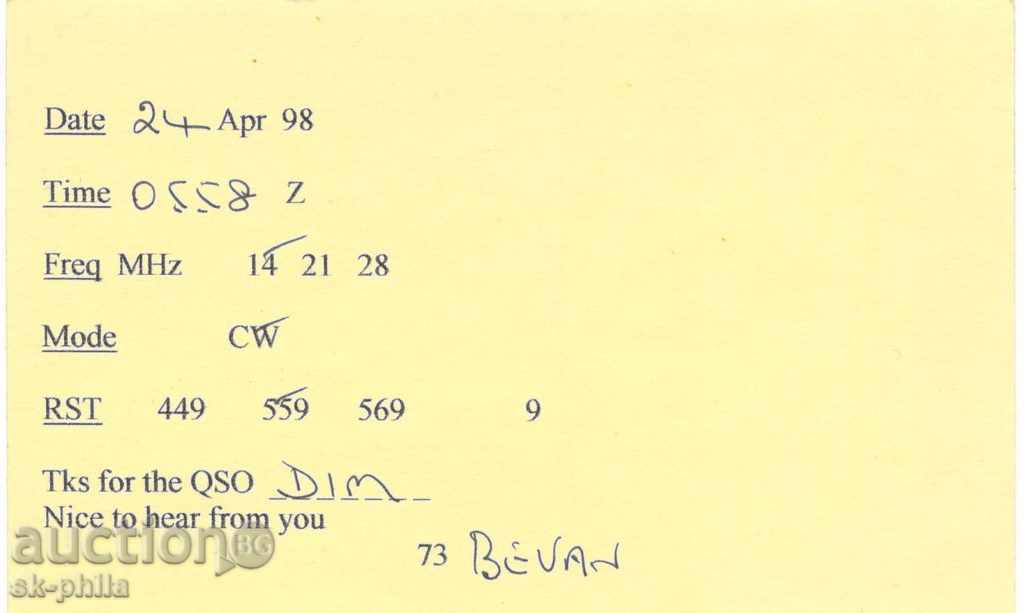 Date 24 Apr 98
Time 0558 Z
Freq MHz 14 21 28
Mode CW
RST 449 559 569 9
Tks for the QSO DIM
Nice to hear from you
73 BEVAN
auction BG
sk-phila